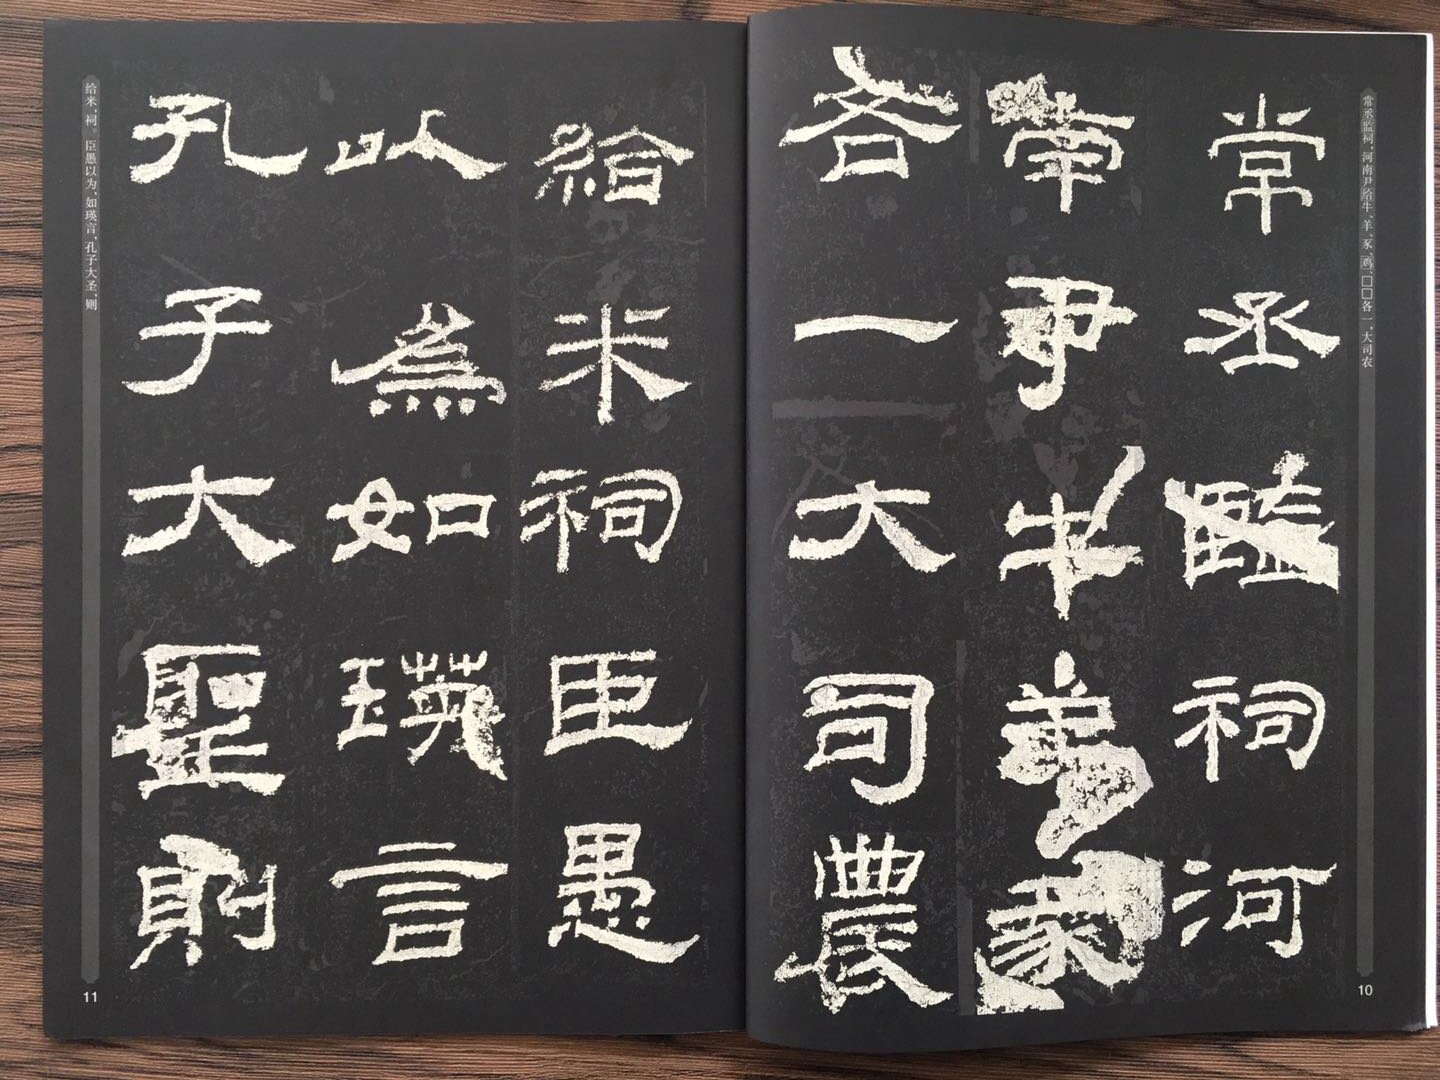 常丞監祠河
南尹給牛、羊、豕、鸡、□□各一,大司农
常丞监祠,河南尹给牛、羊、豕、鸡、□□各一,大司农
南尹牛羊豕
各一大司農
10
給米祠臣愚
以為如瑛言
孔子大聖則
给米,祠。臣愚以为,如瑛言,孔子大圣,则
11